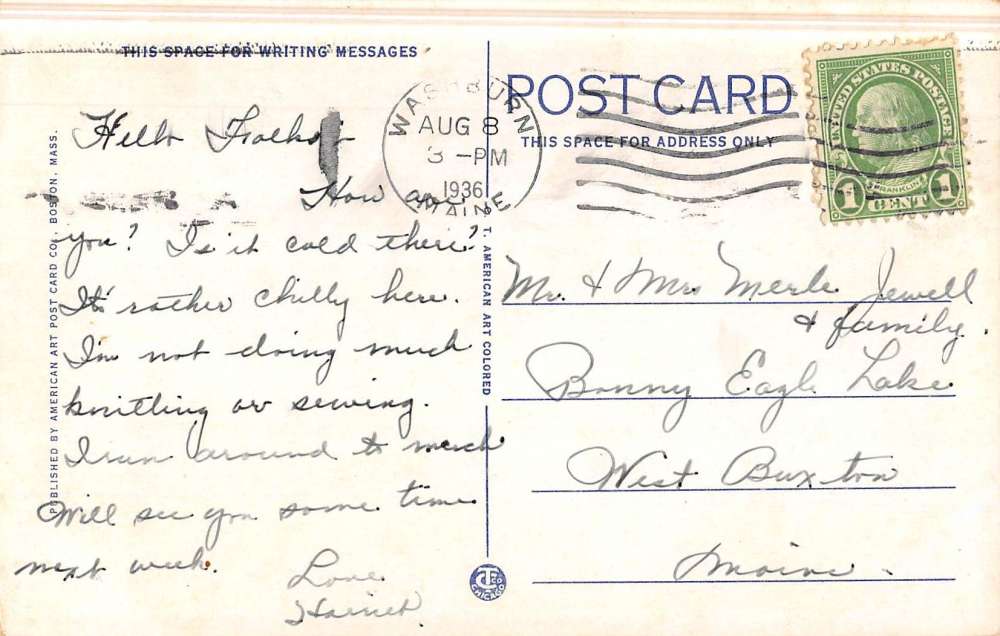 THIS SPACE FOR WRITING MESSAGES
Hello Folks:-
How are
you? Is it cold there?
It's rather chilly here.
I'm not doing much
knitting or sewing.
I run around to much
Will see you some time
next week.
Love
Harriet
PUBLISHED BY AMERICAN ART POST CARD CO., BOSTON, MASS.
WASHBURN
AUG 8
3 -PM
1936
MAINE
C. T. AMERICAN ART COLORED
CHICAGO
POST CARD
THIS SPACE FOR ADDRESS ONLY
UNITED STATES POSTAGE
FRANKLIN
1 CENT 1
Mr. & Mrs Merle Jewell
& family.
Bonny Eagle Lake
West Buxton
Maine.